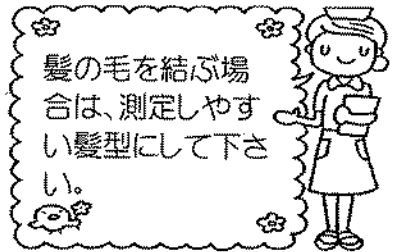 髪の毛を結ぶ場
合は、測定しやす
い髪型にして下さ
い。